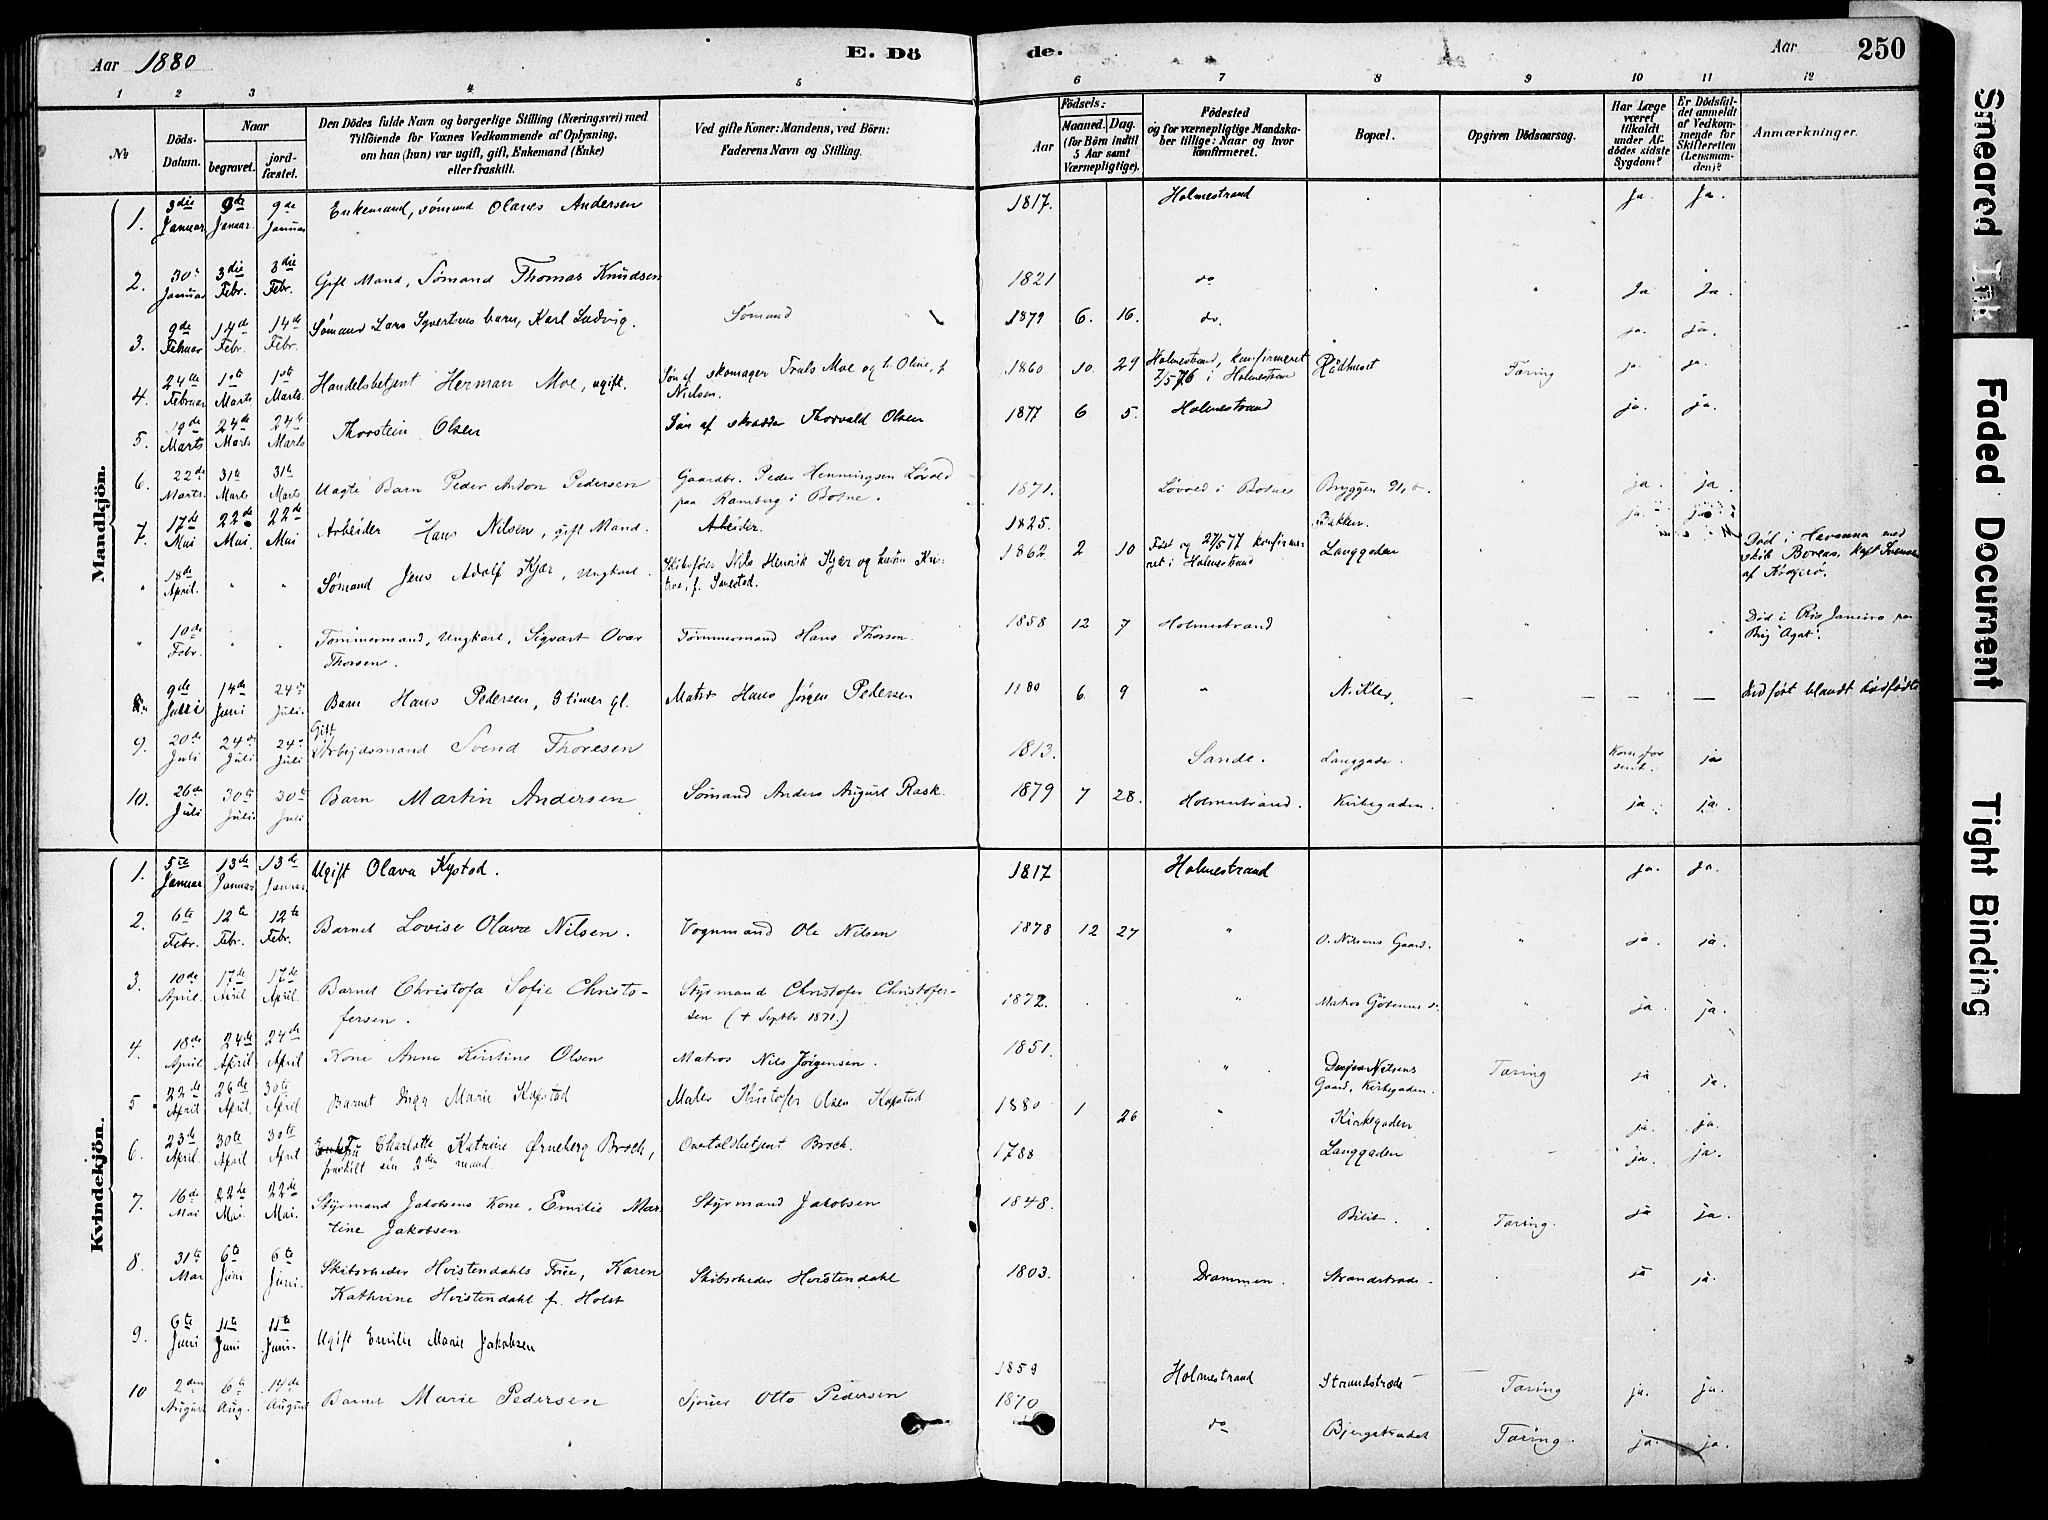 Aar 1880
E. Dö
de.
Aar
250
1 2 3 4 5 6 7 8 9 10 11 12
No
Döds-Datum.
Naar
begravet.
jord-fæstet.
Den Dödes fulde Navn og borgerlige Stilling (Næringsvei) med
Tilföiende for Voxnes Vedkommende af Oplysning,
om han (hun) var ugift, gift, Enkemand (Enke)
eller fraskilt.
Ved gifte Koner: Mandens, ved Börn:
Faderens Navn og Stilling.
Födsels:
Aar
Maaned. Dag.
(for Börn indtil
5 Aar samt
Værnepligtige).
Födested
og for værnepligtige Mandska-
ber tillige: Naar og hvor
konfirmeret.
Bopæl.
Opgiven Dödsaarsag.
Har Læge
været
tilkaldt
under Af-
dödes sidste
Sygdom?
Er Dödsfal-
det anmeldt
af Vedkom-
mende for
Skifteretten
(Lensman-
den)?
Anmærkninger.
Mandkjön.
1. 3die Januar 9de Januar 9de Januar Enkemand, sømand Olaves Andersen 1817. Holmestrand Ja. Ja.
2. 30te Januar 3die Febr. 3die Febr. Gift Mand, Sømand Thomas Knudsen 1821 do Ja Ja.
3. 9de Februar 14de Febr. 14de Febr. Sømand Lars Syvertsens barn, Karl Ludvig. Sømand 1879 6. 16. do. ja. ja.
4. 24de Februar 1ste Marts 1ste Marts. Handelsbetjent Herman Moe, ugift. Søn af skomager Truls Moe og h. Oline, f. Nielsen. 1860 10. 29 Holmestrand, konfirmeret 7/5 76 i Holmestrand Rødhuset Tæring ja. ja.
5. 19de Marts 24de Marts 24de Marts Thorstein Olsen Søn af skrædder Thorvald Olsen 1877 6 5. Holmestrand ja. ja.
6. 22de Marts 31te Marts 31te Marts Uægte Barn Peder Anton Pedersen Gaardbr. Peder Henningsen Løvold paa Ramberg i Botne. 1871. Løvold i Botne Bryggen ja. ja.
7. 17de Mai 22de Mai 22de Mai Arbeider Hans Nilsen, gift Mand. Arbeider. 1825. Bakken. ja. ja
" 18de April. " " Sømand Jens Adolf Kjær, Ungkarl. Skibsfører Nils Henrik Kjær og hustru 1862 2 10 Født og 27/5 77 konfirmeret i Holmestrand Langgaden Død i Havanna med skib Boreas, kapt Svensen af Kragerø.
" 10de Febr. " " Tømmermand, Ungkarl, Sigvart Ovar Thorsen. Tømmermand Hans Thorsen. 1858 12 7 Holmestrand " " " Død i Rio Janeiro paa Brig "Agat".
8. 9de Juni 14de Juni 24de Juli. Barn Hans Pedersen, 9 timer gl. Matros Hans Jørgen Pedersen 1880 6 9 " — — — Indført blandt dødfødte
9. 20de Juli 24de Juli 24de Juli Gift Arbejdsmand Svend Thoresen 1813. Sande. Langgade. Kom for sent. ja
10. 26de Juli 30te Juli 30te Juli Barn Martin Andersen Sømand Anders August Rask. 1879 7 28. Holmestrand. Kirkegaden. ja ja.
Kvindekjön.
1. 5te Januar 13de Januar 13de Januar Ugift Olava Kystad. 1817 Holmestrand ja. ja.
2. 6te Febr. 12te Febr. 12te Febr. Barnet Lovise Olava Nilsen. Vognmand Ole Nilsen 1878 12 27 " O. Nilsens Gaard. " ja. ja.
3. 10de April. 17de April 17de April. Barnet Christofa Sofie Christofersen. Styrmand Christofer Christofersen († Septbr 1871.) 1872. " Matros " ja. ja.
4. 18de April 24de April 24de April Kone Anne Kirstine Olsen Matros Nils Jørgensen. 1851. " Nilsens Gaard, Kirkegaden. Tæring ja ja.
5. 22de April 26de April 30te April Barnet Inga Marie Kapstad Maler Kristofer Olsen Kapstad 1880 1 26 " Kirkegaden ja. ja.
6. 23de April. 30te April 30te April Fru Charlotte Katrine Ørneberg Broch, fraskilt sin 2den mand. Overtoldbetjent Broch. 1788 Langgaden ja. ja.
7. 16de Mai 22de Mai. 22de Mai. Styrmand Jakobsens Kone, Emilie Martine Jakobsen Styrmand Jakobsen 1848. Bilit. Tæring. ja ja.
8. 31te Mai 6te Juni 6te Juni. Skibsrheder Hvistendahls Frue, Karen Kathrine Hvistendahl f. Holst Skibsrheder Hvistendahl 1803. Drammen. Strandstræde. ja ja.
9. 6te Juni 11te Juni 11te Juni. Ugift Emilie Marie Jakobsen 1859 Holmestrand Strandstræde Tæring ja. ja.
10 2den August 6te Aug. 14de August Barnet Marie Pedersen Sjouer Otto Pedersen 1870 do Bjergstrædet Tæring. ja. ja.
Smeared Ink
Faded Document
Tight Binding